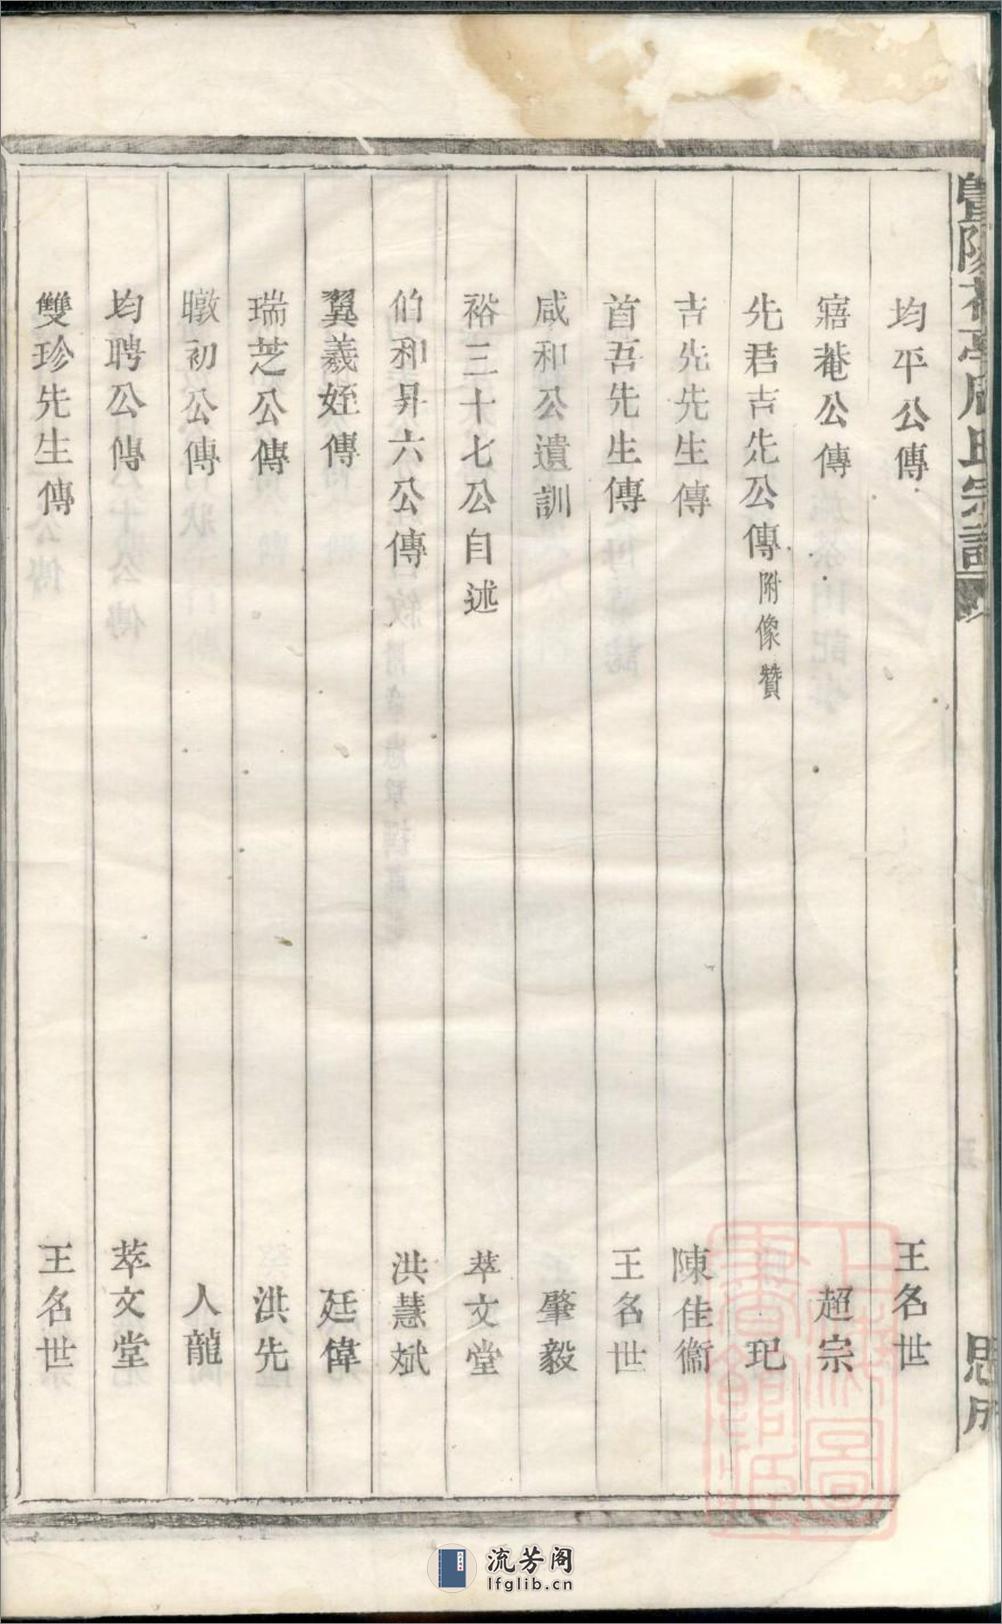 均平公傳 王名世
寤菴公傳 超宗
先君吉先公傳附像贊 玘
吉先先生傳 陳佳衞
首吾先生傳 王名世
咸和公遺訓 肇毅
裕三十七公自述 萃文堂
伯和昇六公傳 洪慧斌
翼羲姪傳 廷偉
瑞芝公傳 洪先
暾初公傳 人龍
均聘公傳 萃文堂
雙珍先生傳 王名世
流芳阁
lfglib.cn